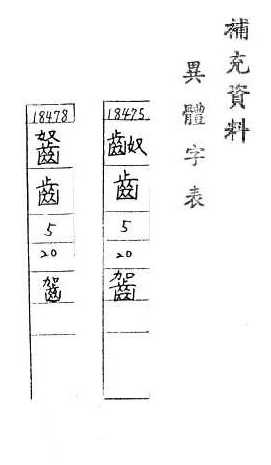 補充資料
異體字表
18475
齒
5
20
18478
齒
5
20